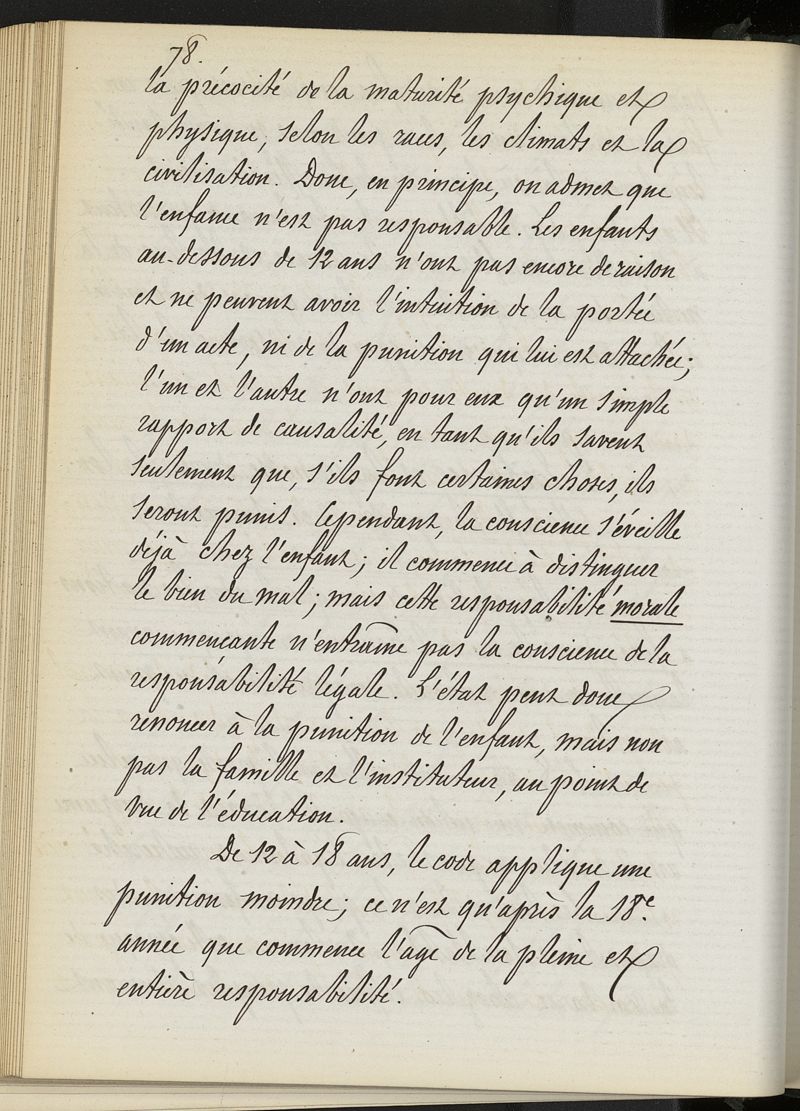 78.
la précocité de la maturité psychique et
physique, selon les races, les climats et la
civilisation. Donc, en principe, on admet que
l'enfance n'est pas responsable. Les enfants
au-dessous de 12 ans n'ont pas encore de raison
et ne peuvent avoir l'intuition de la portée
d'un acte, ni de la punition qui lui est attachée;
l'un et l'autre n'ont pour eux qu'un simple
rapport de causalité, en tant qu'ils savent
seulement que, s'ils font certaines choses, ils
seront punis. Cependant, la conscience s'éveille
déjà chez l'enfant; il commence à distinguer
le bien du mal; mais cette responsabilité morale
commencante n'entraîne pas la conscience de la
responsabilité légale. L'état peut donc
renoncer à la punition de l'enfant, mais non
pas la famille et l'instituteur, au point de
vue de l'éducation.
De 12 à 18 ans, le code applique une
punition moindre; ce n'est qu'après la 18e.
année que commence l'âge de la pleine et
entière responsabilité.